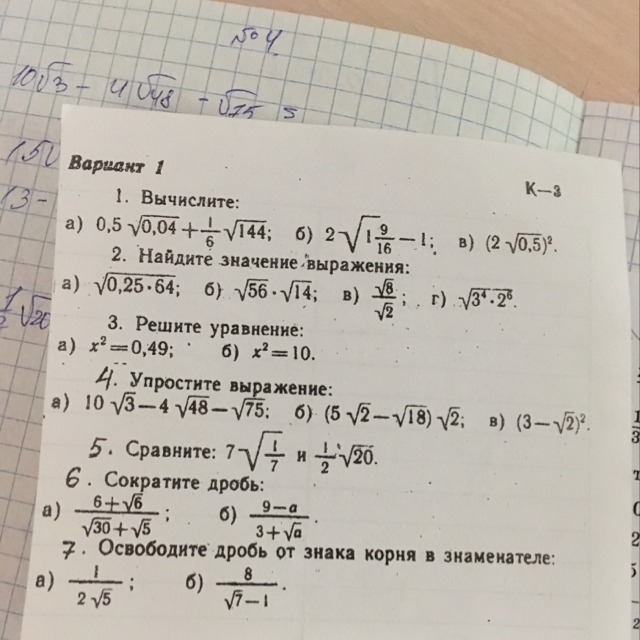 № 4.
10√3 - 4√48 - √75 =
Вариант 1
К—3
1. Вычислите:
а) 0,5 √0,04 + 1/6 √144; б) 2 √(1 9/16) − 1; в) (2 √0,5)².
2. Найдите значение выражения:
а) √(0,25·64); б) √56 · √14; в) √8/√2; г) √(3⁴·2⁶).
3. Решите уравнение:
а) x² = 0,49; б) x² = 10.
4. Упростите выражение:
а) 10 √3 − 4 √48 − √75; б) (5 √2 − √18) √2; в) (3 − √2)².
5. Сравните: 7√(1/7) и 1/2 √20.
6. Сократите дробь:
а) (6+√6)/(√30+√5); б) (9−a)/(3+√a).
7. Освободите дробь от знака корня в знаменателе:
а) 1/(2 √5); б) 8/(√7−1).